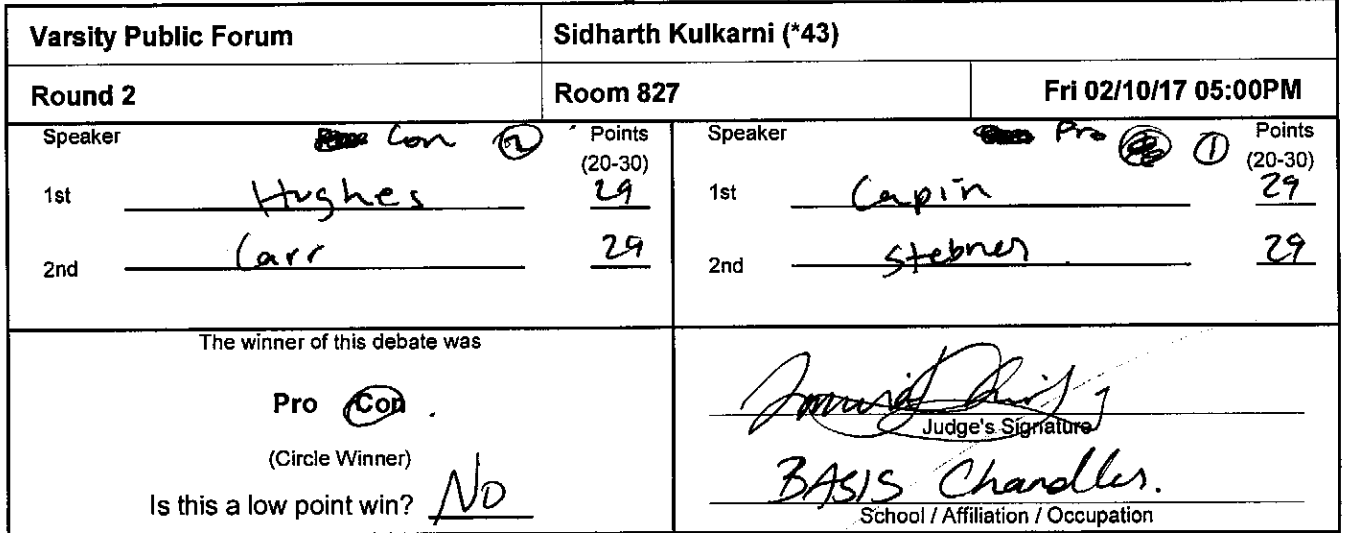 Varsity Public Forum
Sidharth Kulkarni (*43)
Round 2
Room 827
Fri 02/10/17 05:00PM
Speaker Con 2 Points
(20-30)
1st Hughes 29
2nd Carr 29
Speaker Pro 1 Points
(20-30)
1st Capin 29
2nd Stebner 29
The winner of this debate was
Pro Con
(Circle Winner)
Is this a low point win? No
Judge's Signature
BASIS Chandler.
School / Affiliation / Occupation